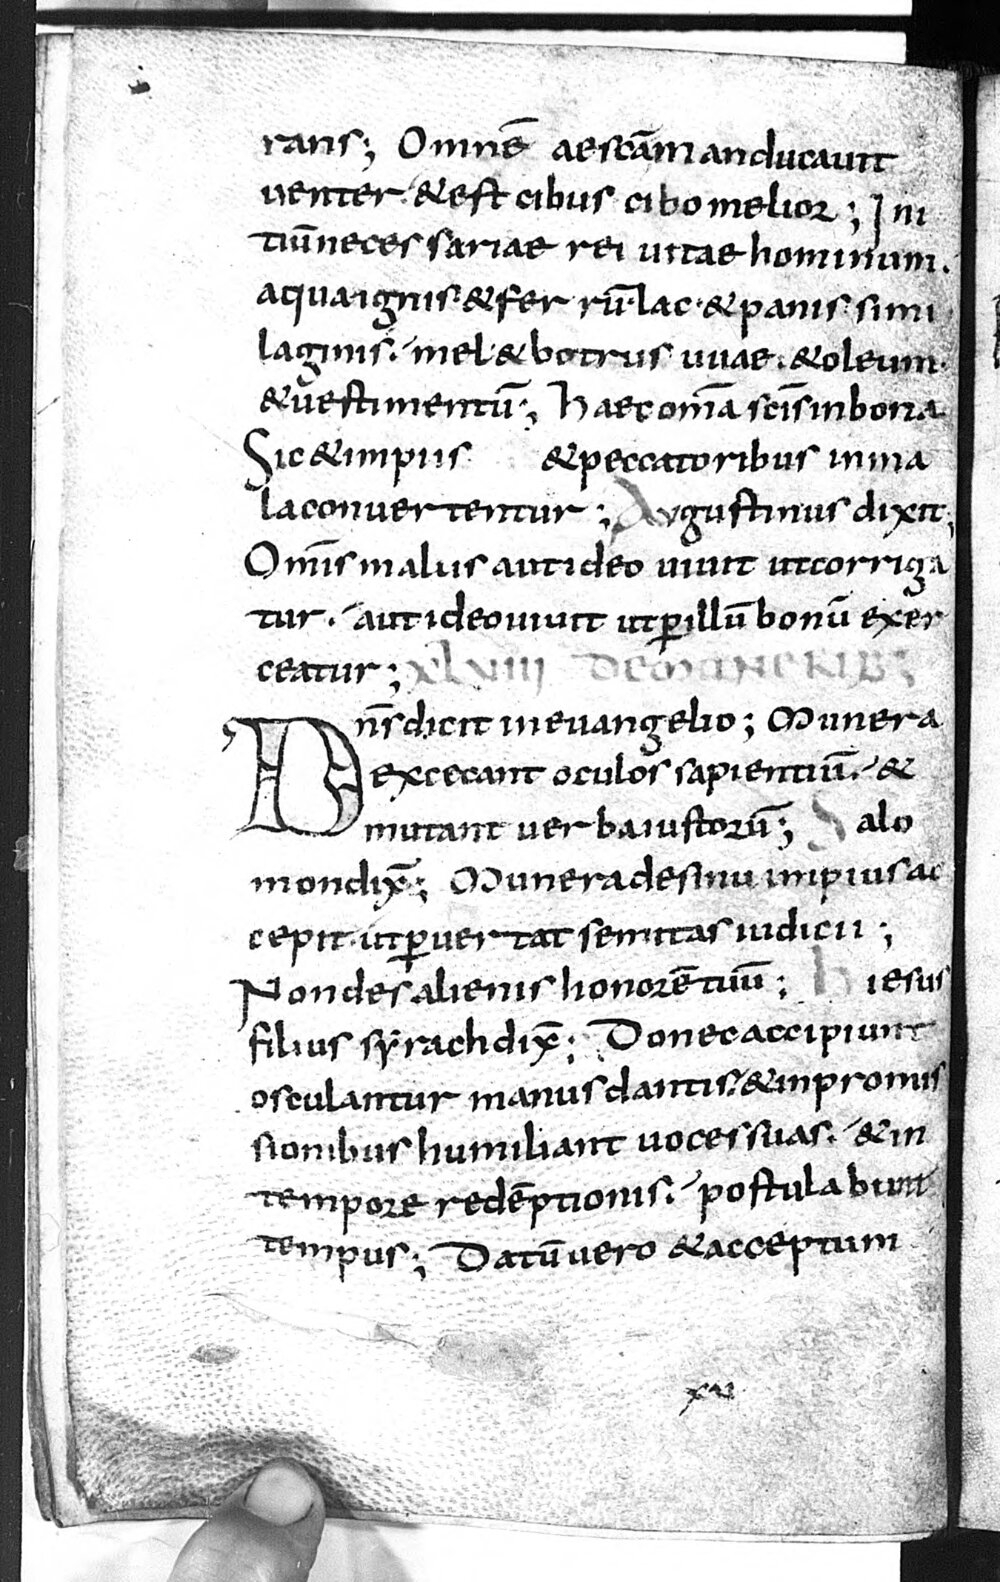 rans; Omnē aescām anducauit
uenter· & est cibus cibo melior; Ini
tiū necessariae rei uitae hominum.
aqua ignis· & ferrū· lac· & panis simi
laginis· mel & botrus uuae· & oleum·
& uestimentū·; Haec om̄a sc̄is in bona
Sic & impiis & peccatoribus in ma
la conuertentur; Augustinus dixit;
Om̄is malus aut ideo uiuit ut corriga
tur· aut ideo uiuit ut ꝑ illū bonū exer
ceatur; xlviii DE MUNERIB;
Dn̄s dicit in euangelio; Munera
excecant oculos sapientiū· &
mutant uerba iustorū; Salo
mon dix̄; Munera de sinu impius ac
cepit· ut ꝑuertat semitas iudicii;
Non des alienis honorē tuū; h iesus
filius syrach dix̄; Donec accipiunt
osculantur manus dantis· & in promis
sionibus humiliant uoces suas· & in
tempore redēptionis· postulabunt
tempus; Datū uero & acceptum
xv